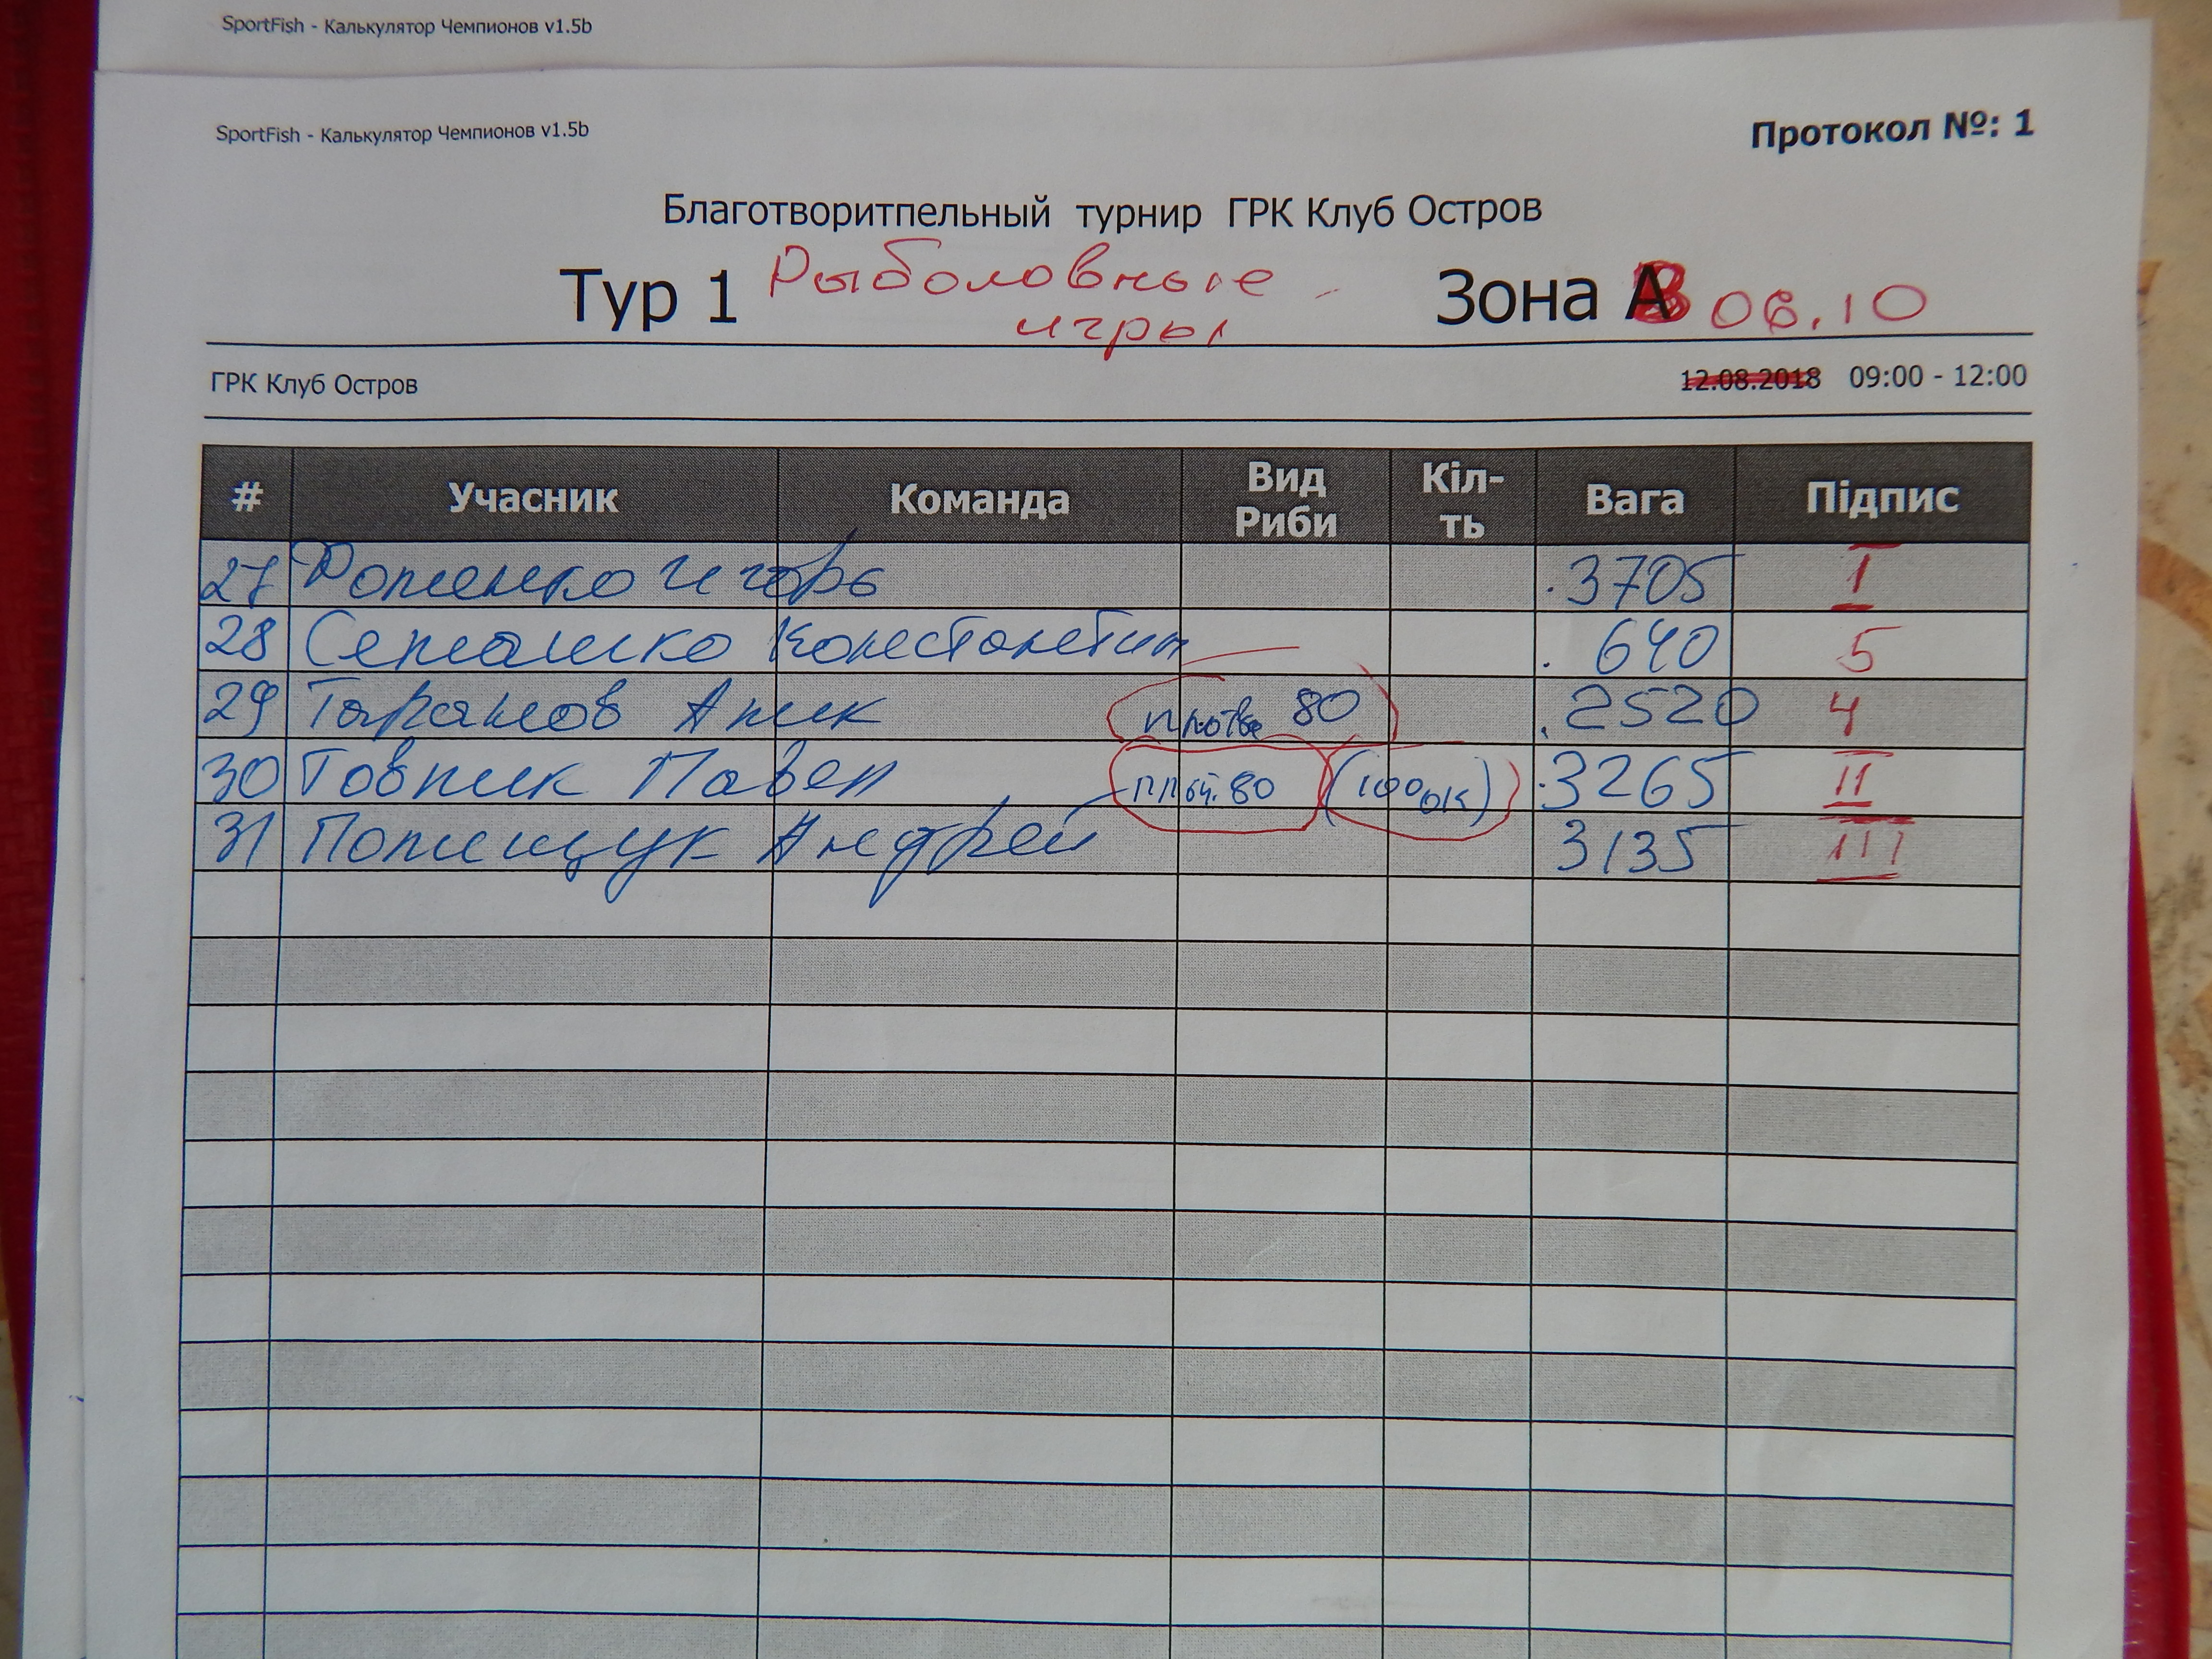 SportFish - Калькулятор Чемпионов v1.5b
SportFish - Калькулятор Чемпионов v1.5b
Протокол №: 1
Благотворитпельный турнир ГРК Клуб Остров
Тур 1 Рыболовные игры Зона В 06.10
ГРК Клуб Остров 12.08.2018 09:00 - 12:00
# Учасник Команда Вид Риби Кіл-ть Вага Підпис
27 Игорь 3705 I
28 Константин 640 5
29 Таранов плотва 80 2520 4
30 Товпик Павел 80 (100 ок) 3265 II
31 Полищук Андрей 3135 III